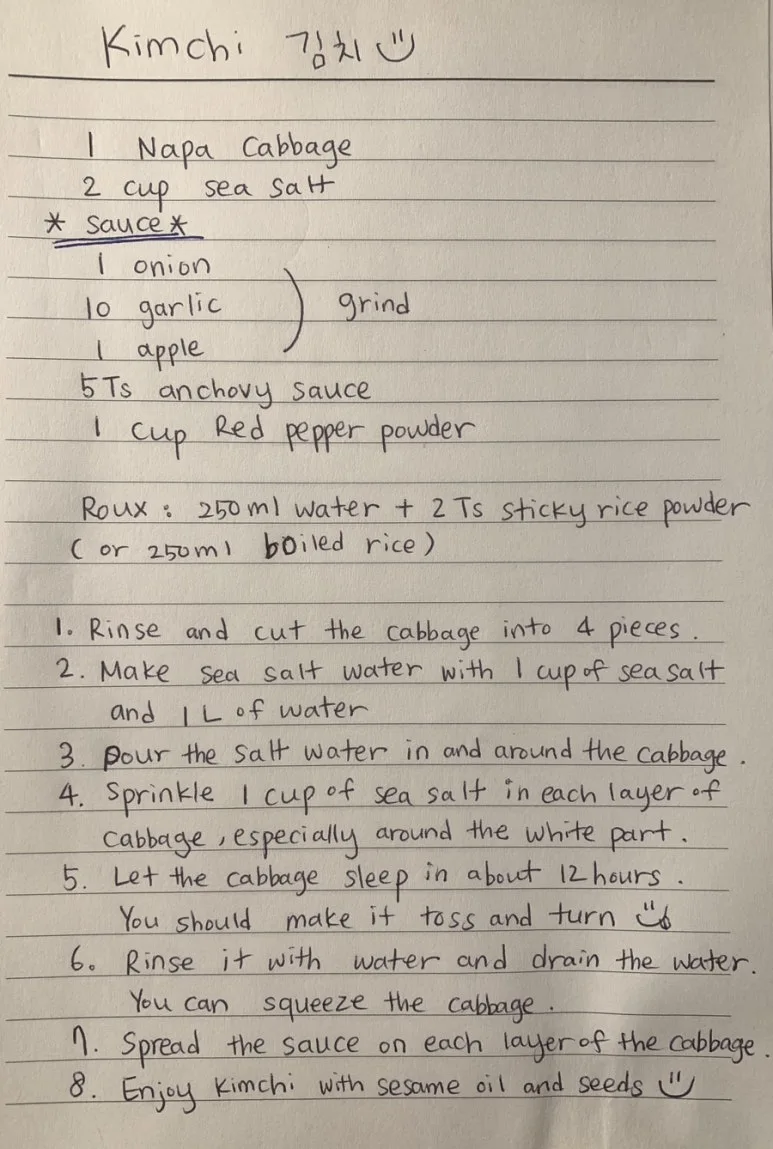 Kimchi 김치
1 Napa Cabbage
2 cup sea salt
* sauce *
1 onion
10 garlic grind
1 apple
5 Ts anchovy sauce
1 cup Red pepper powder
Roux : 250ml water + 2 Ts sticky rice powder
( or 250ml boiled rice )
1. Rinse and cut the cabbage into 4 pieces.
2. Make sea salt water with 1 cup of sea salt
and 1 L of water
3. pour the salt water in and around the cabbage.
4. Sprinkle 1 cup of sea salt in each layer of
cabbage, especially around the white part.
5. Let the cabbage sleep in about 12 hours.
You should make it toss and turn
6. Rinse it with water and drain the water.
You can squeeze the cabbage.
7. Spread the sauce on each layer of the cabbage.
8. Enjoy Kimchi with sesame oil and seeds